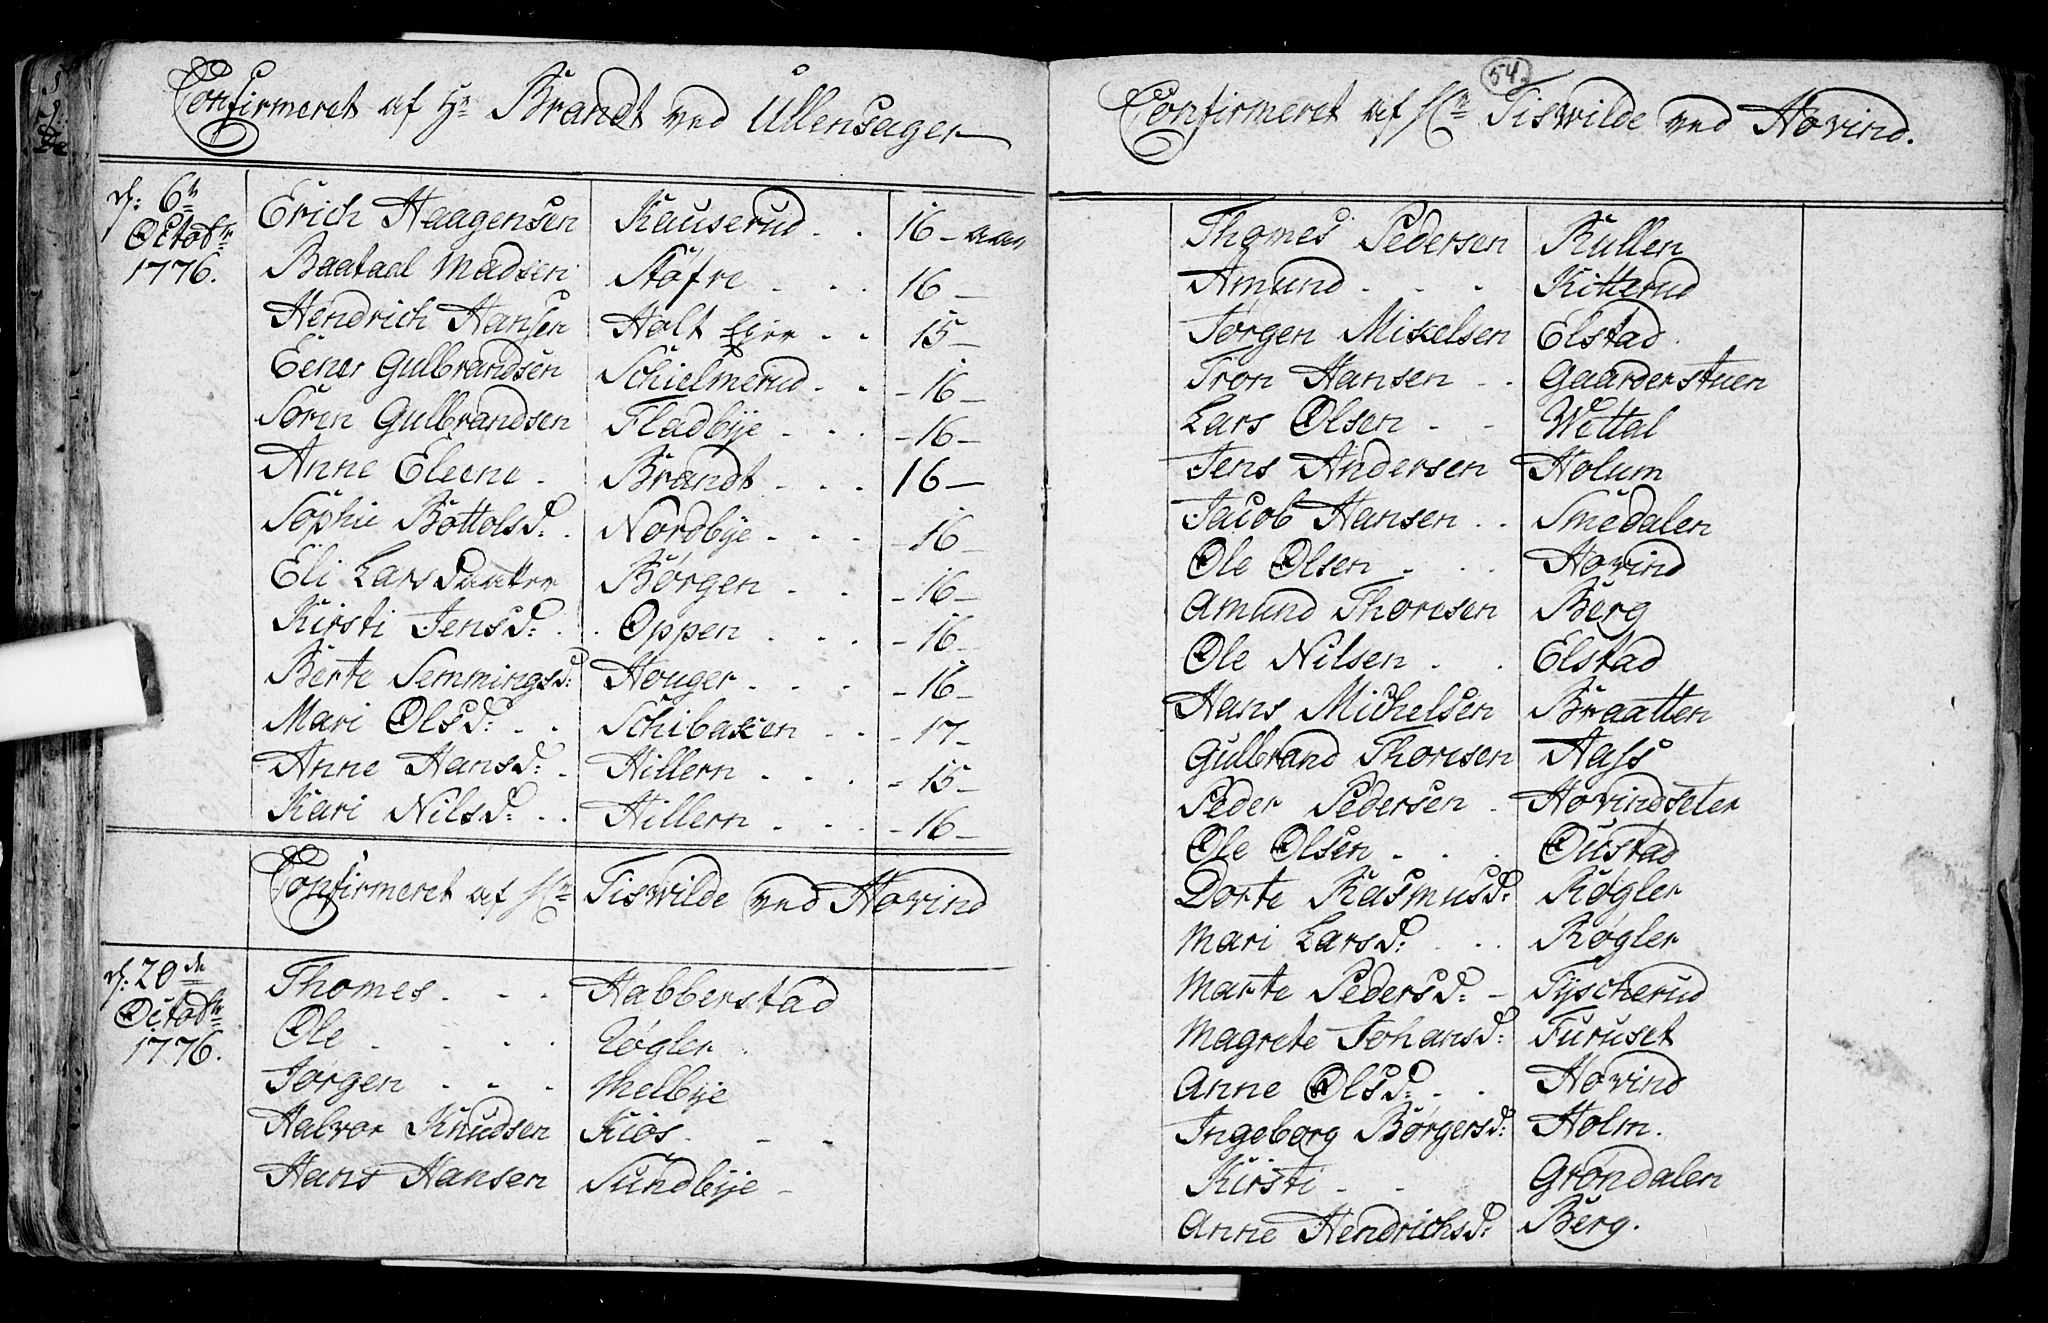 Confirmeret af Hr Brandt ved Ullensager
d: 6te Erich Haagensen Kauserud . . 16 – aar
Octobr Baataal Madsen Støfre . . . 16 –
1776. Hendrich Hansen Holt Eier . . 15 –
Eener Gulbrandsen Schielmerud . . – 16 –
Sørin Gulbrandsen Fladbye . . . – 16 –
Anne Eleene . Brandt . . . 16 –
Sophie Bottolsd: . Nordbye . . . – 16 –
Eli Larsdaatter Børgen . . – 16 –
Kirsti Jensd: . . Oppen . . . – 16 –
Berte Semmingsd: Houger . . . – 16 –
Mari Olsd: . . Schibaken . . – 17 –
Anne Hansd: . Hillern . . . – 15 –
Kari Nilsd: . . Hillern . . . – 16 –
Confirmeret af Hr Tiswilde ved Hovind
d: 20de Thomes . . . Habberstad
Octobr Ole . . . . Røgler
1776. Jørgen . . . Melbye
Halvor Knudsen Kiøs . . .
Hans Hansen Sundbye –
54
Confirmeret af Hr Tiswilde ved Hovind.
Thomes Pedersen Kullen
Amund . . . Kitterud
Jørgen Mikelsen Elstad.
Tron Hansen . . Gaarderstuen
Lars Olsen . . Wettal
Jens Andersen Holum
Jacob Hansen . . Smedalen
Ole Olsen . . . Hovind
Amund Thoresen Berg
Ole Nilsen . . Elstad
Hans Michelsen Braatten
Gulbrand Thoresen Aass
Peder Pedersen . Hovindseter
Ole Olsen . . . Oustad
Dorte Rasmusd: Røgler
Mari Larsd: . . . Røgler
Marte Pedersd: – Tyscherud
Magrete Johansd: Furuset
Anne Olsd: . . Hovind
Ingeborg Børgersd: Holm.
Kirsti . . Grøndalen
Anne Hendrichsd: Berg.